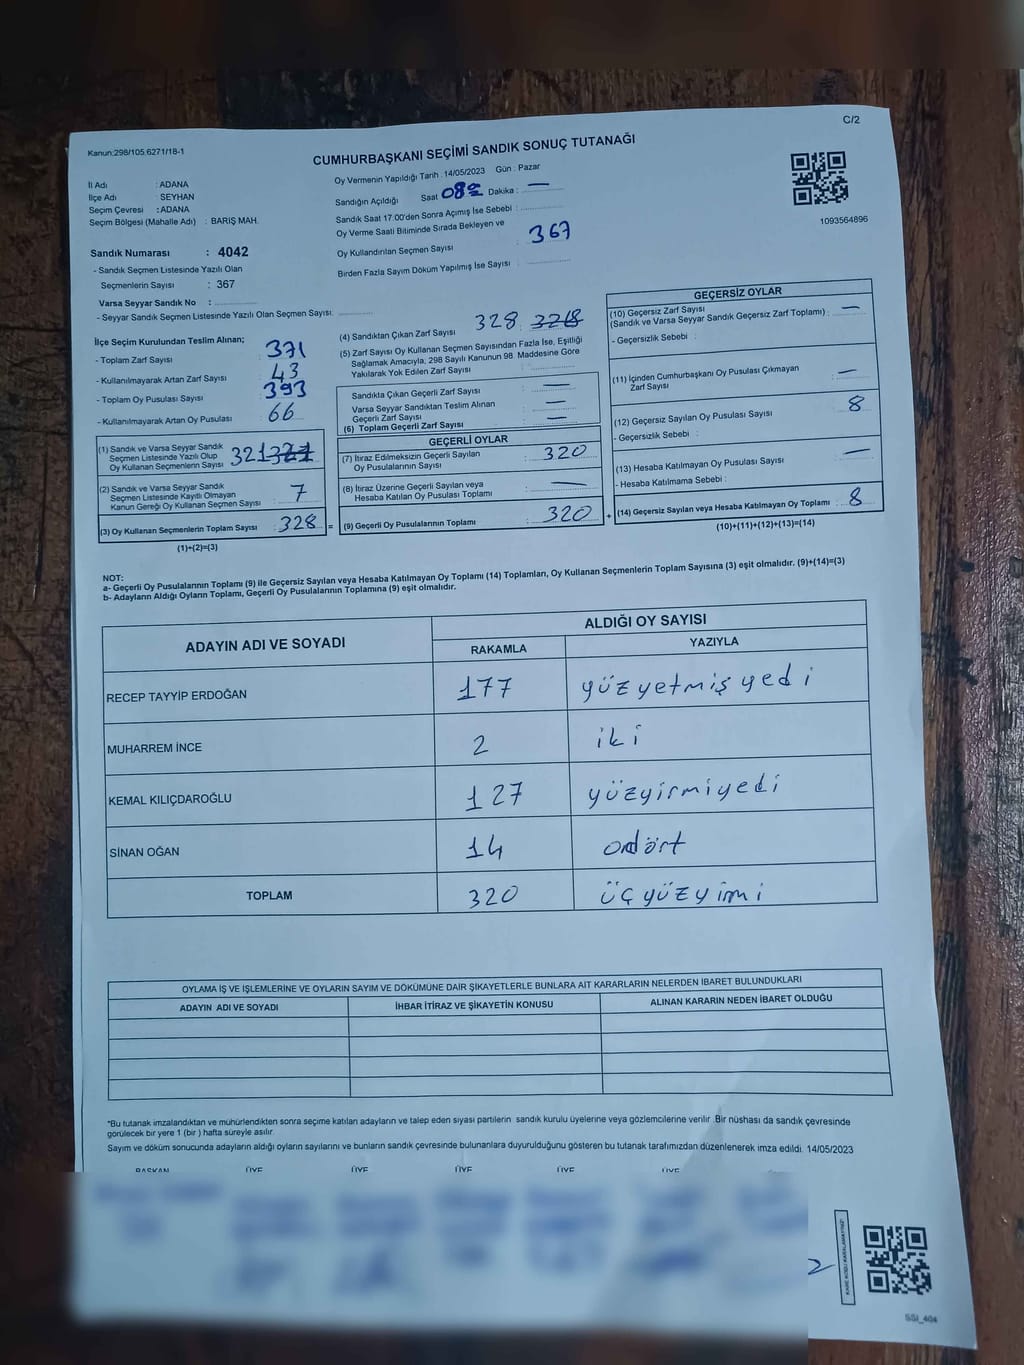 C/2
Kanun:298/105;6271/18-1
CUMHURBAŞKANI SEÇİMİ SANDIK SONUÇ TUTANAĞI
İl Adı : ADANA
İlçe Adı SEYHAN
Seçim Çevresi : ADANA
Seçim Bölgesi (Mahalle Adı) : BARIŞ MAH.
Sandık Numarası : 4042
- Sandık Seçmen Listesinde Yazılı Olan
Seçmenlerin Sayısı : 367
Varsa Seyyar Sandık No :
- Seyyar Sandık Seçmen Listesinde Yazılı Olan Seçmen Sayısı:
Oy Vermenin Yapıldığı Tarih : 14/05/2023 Gün : Pazar
Sandığın Açıldığı Saat 08 Dakika : —
Sandık Saat 17:00'den Sonra Açımış İse Sebebi :
Oy Verme Saati Bitiminde Sırada Bekleyen ve
Oy Kullandırılan Seçmen Sayısı : 367
Birden Fazla Sayım Döküm Yapılmış İse Sayısı :
1093564896
İlçe Seçim Kurulundan Teslim Alınan;
- Toplam Zarf Sayısı : 371
- Kullanılmayarak Artan Zarf Sayısı : 43
- Toplam Oy Pusulası Sayısı : 393
- Kullanılmayarak Artan Oy Pusulası : 66
(1) Sandık ve Varsa Seyyar Sandık
Seçmen Listesinde Yazılı Olup
Oy Kullanan Seçmenlerin Sayısı : 321
(2) Sandık ve Varsa Seyyar Sandık
Seçmen Listesinde Kayıtlı Olmayan
Kanun Gereği Oy Kullanan Seçmen Sayısı : 7
(3) Oy Kullanan Seçmenlerin Toplam Sayısı : 328 =
(1)+(2)=(3)
(4) Sandıktan Çıkan Zarf Sayısı 328
(5) Zarf Sayısı Oy Kullanan Seçmen Sayısından Fazla İse, Eşitliği
Sağlamak Amacıyla, 298 Sayılı Kanunun 98. Maddesine Göre
Yakılarak Yok Edilen Zarf Sayısı :
Sandıkta Çıkan Geçerli Zarf Sayısı : —
Varsa Seyyar Sandıktan Teslim Alınan
Geçerli Zarf Sayısı : —
(6) Toplam Geçerli Zarf Sayısı : —
GEÇERLİ OYLAR
(7) İtiraz Edilmeksizin Geçerli Sayılan
Oy Pusulalarının Sayısı : 320
(8) İtiraz Üzerine Geçerli Sayılan veya
Hesaba Katılan Oy Pusulası Toplamı : —
(9) Geçerli Oy Pusulalarının Toplamı : 320 +
GEÇERSİZ OYLAR
(10) Geçersiz Zarf Sayısı
(Sandık ve Varsa Seyyar Sandık Geçersiz Zarf Toplamı) : —
- Geçersizlik Sebebi :
(11) İçinden Cumhurbaşkanı Oy Pusulası Çıkmayan
Zarf Sayısı : —
(12) Geçersiz Sayılan Oy Pusulası Sayısı : 8
- Geçersizlik Sebebi :
(13) Hesaba Katılmayan Oy Pusulası Sayısı : —
- Hesaba Katılmama Sebebi :
(14) Geçersiz Sayılan veya Hesaba Katılmayan Oy Toplamı : 8
(10)+(11)+(12)+(13)=(14)
NOT:
a- Geçerli Oy Pusulalarının Toplamı (9) ile Geçersiz Sayılan veya Hesaba Katılmayan Oy Toplamı (14) Toplamları, Oy Kullanan Seçmenlerin Toplam Sayısına (3) eşit olmalıdır. (9)+(14)=(3)
b- Adayların Aldığı Oyların Toplamı, Geçerli Oy Pusulalarının Toplamına (9) eşit olmalıdır.
ADAYIN ADI VE SOYADI ALDIĞI OY SAYISI
RAKAMLA YAZIYLA
RECEP TAYYİP ERDOĞAN 177 yüzyetmişyedi
MUHARREM İNCE 2 iki
KEMAL KILIÇDAROĞLU 127 yüzyirmiyedi
SİNAN OĞAN 14 ondört
TOPLAM 320 üçyüzyimi
OYLAMA İŞ VE İŞLEMLERİNE VE OYLARIN SAYIM VE DÖKÜMÜNE DAİR ŞİKAYETLERLE BUNLARA AİT KARARLARIN NELERDEN İBARET BULUNDUKLARI
ADAYIN ADI VE SOYADI İHBAR İTİRAZ VE ŞİKAYETİN KONUSU ALINAN KARARIN NEDEN İBARET OLDUĞU
*Bu tutanak imzalandıktan ve mühürlendikten sonra seçime katılan adayların ve talep eden siyasi partilerin sandık kurulu üyelerine veya gözlemcilerine verilir. Bir nüshası da sandık çevresinde
görülecek bir yere 1 (bir ) hafta süreyle asılır.
Sayım ve döküm sonucunda adayların aldığı oyların sayılarını ve bunların sandık çevresinde bulunanlara duyurulduğunu gösteren bu tutanak tarafımızdan düzenlenerek imza edildi. 14/05/2023
BAŞKAN ÜYE ÜYE ÜYE ÜYE ÜYE
KARE KODU KARALAMAYINIZ!
SSI_404